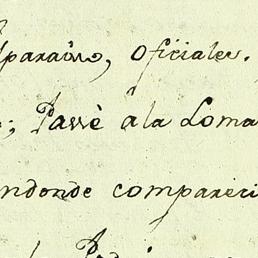 lparaiso, oficiales.
; Passè a la Loma
ndonde compareci